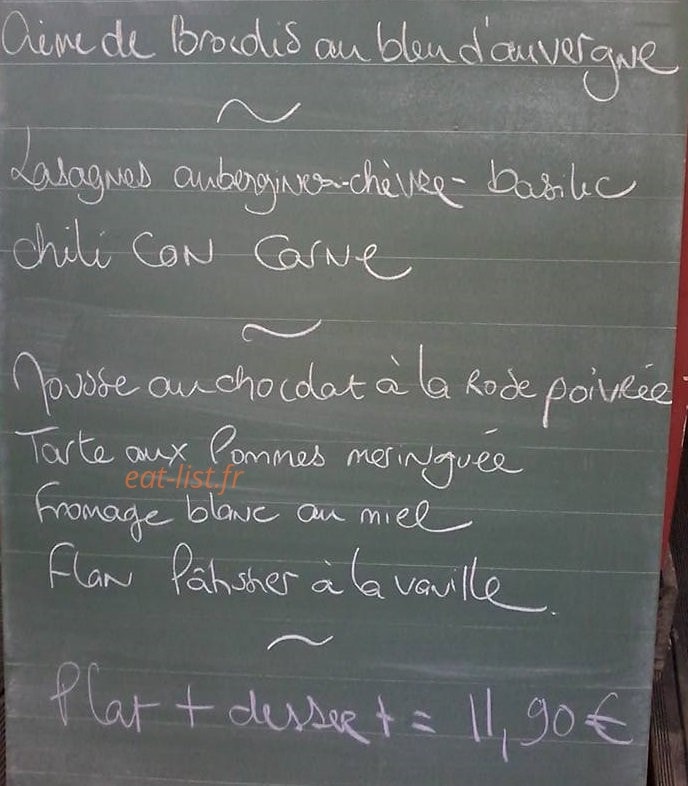 Crème de Brocolis au bleu d'auvergne
~
Lasagnes aubergines-chèvre-basilic
chili con carne
~
Mousse au chocolat à la Rose poivrée
Tarte aux Pommes meringuée
eat-list.fr
fromage blanc au miel
Flan Pâtissier à la vanille.
~
Plat + dessert = 11,90 €